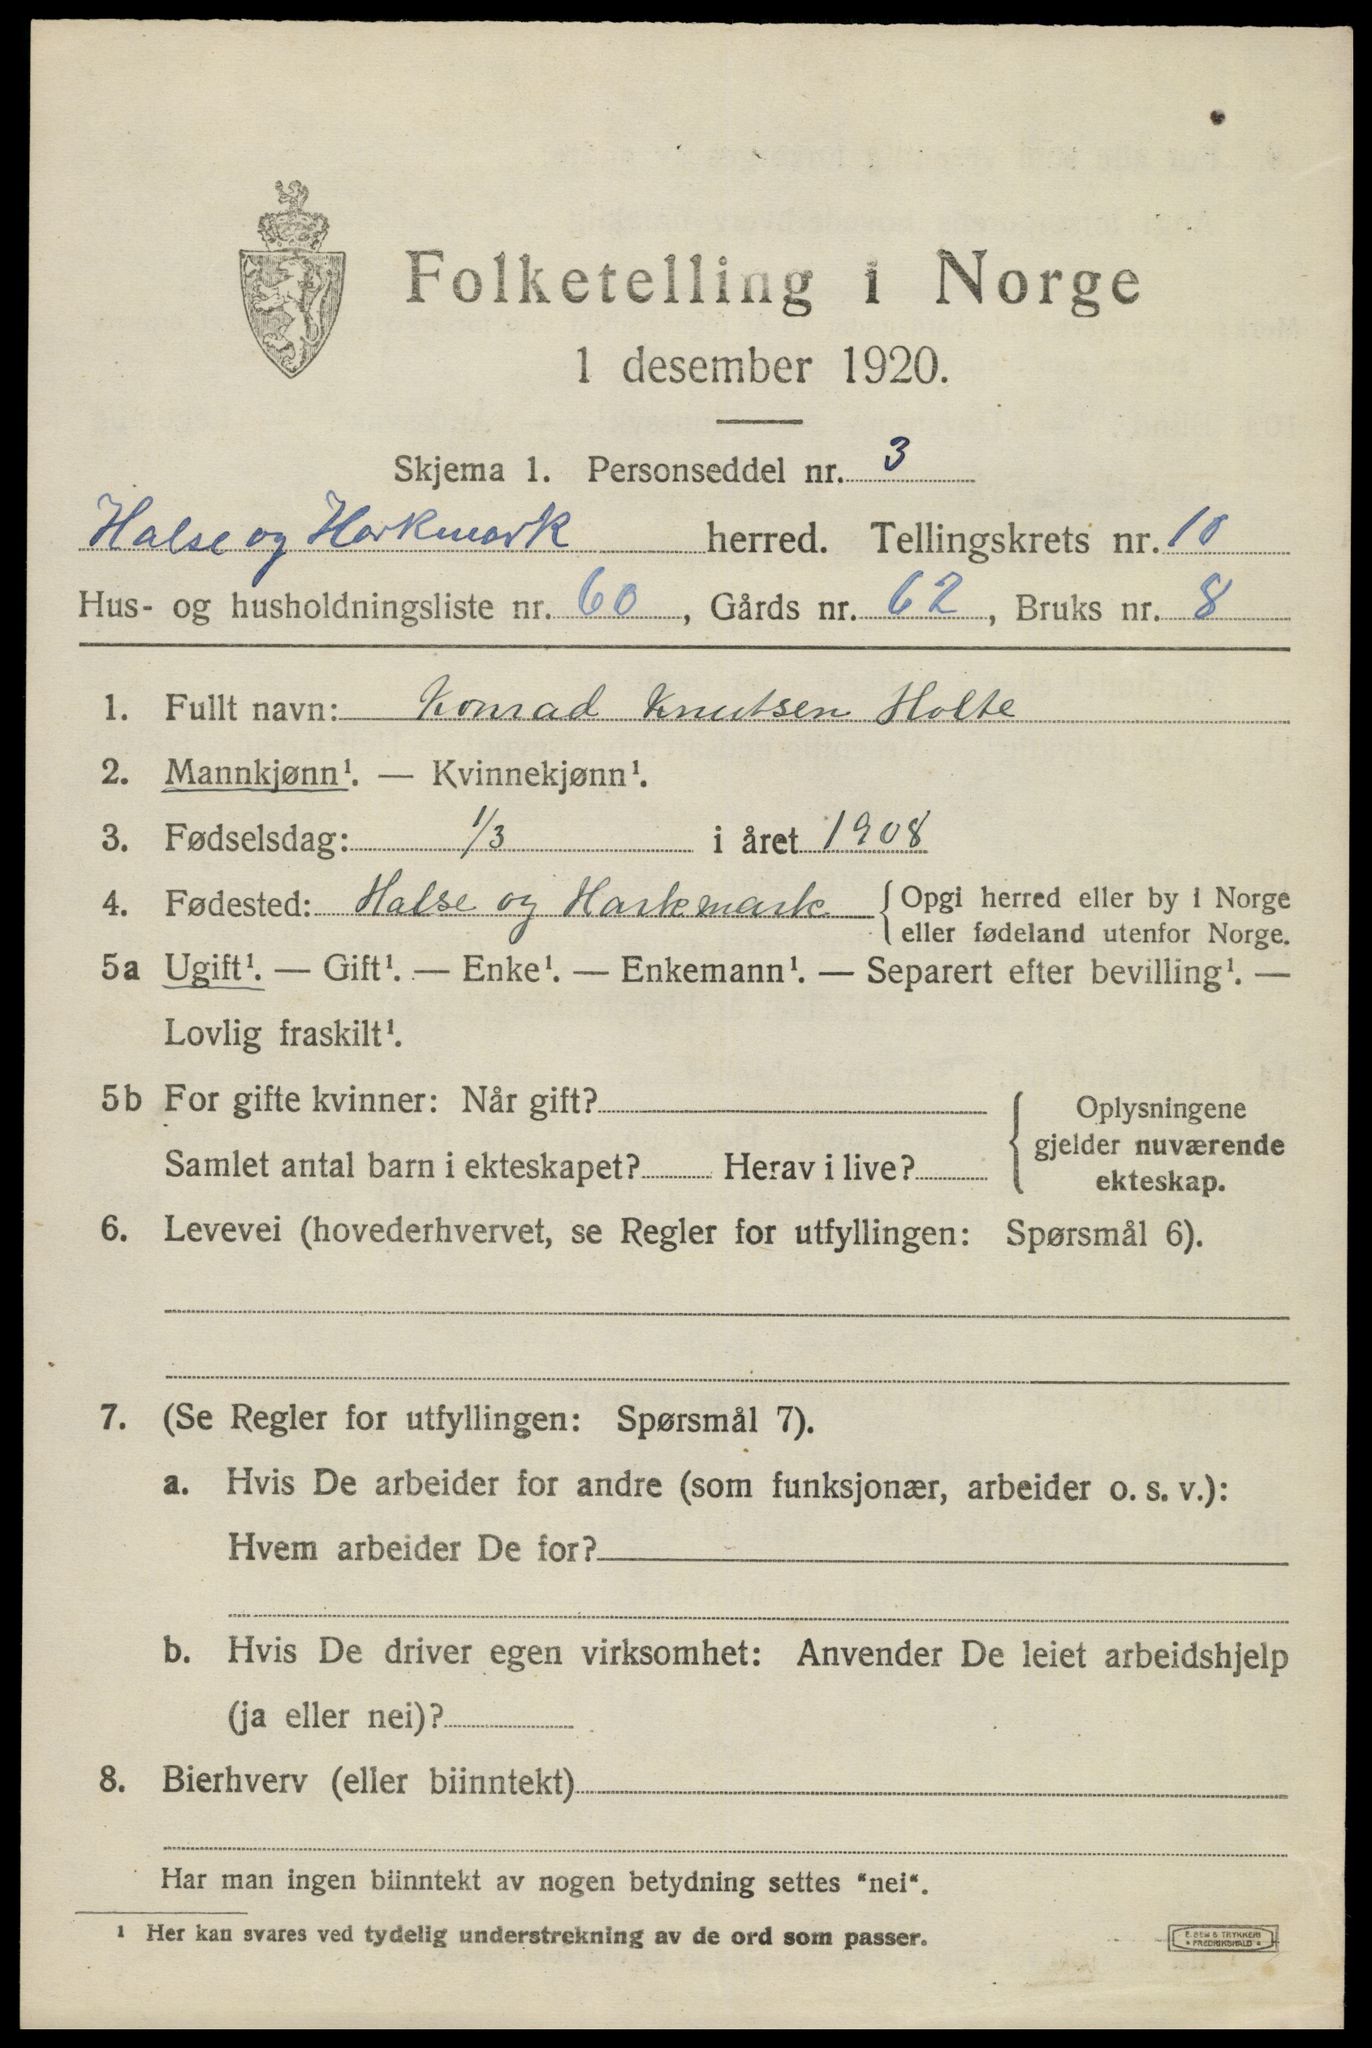 Folketelling i Norge
1 desember 1920.
Skjema 1. Personseddel nr. 3
Halse og Harkmark herred. Tellingskrets nr. 10
Hus- og husholdningsliste nr. 60, Gårds nr. 62, Bruks nr. 8
1. Fullt navn: Konrad Knutsen Holte
2. Mannkjønn¹. — Kvinnekjønn¹.
3. Fødselsdag: 1/3 i året 1908
4. Fødested: Halse og Harkmark { Opgi herred eller by i Norge
eller fødeland utenfor Norge.
5a Ugift¹. — Gift¹. — Enke¹. — Enkemann¹. — Separert efter bevilling¹. —
Lovlig fraskilt¹.
5b For gifte kvinner: Når gift?
Samlet antal barn i ekteskapet? Herav i live?
{ Oplysningene
gjelder nuværende
ekteskap.
6. Levevei (hovederhvervet, se Regler for utfyllingen: Spørsmål 6).
7. (Se Regler for utfyllingen: Spørsmål 7).
a. Hvis De arbeider for andre (som funksjonær, arbeider o. s. v.):
Hvem arbeider De for?
b. Hvis De driver egen virksomhet: Anvender De leiet arbeidshjelp
(ja eller nei)?
8. Bierhverv (eller biinntekt)
Har man ingen biinntekt av nogen betydning settes "nei".
¹ Her kan svares ved tydelig understrekning av de ord som passer.
TRYKKERI
FREDRIKSHALD